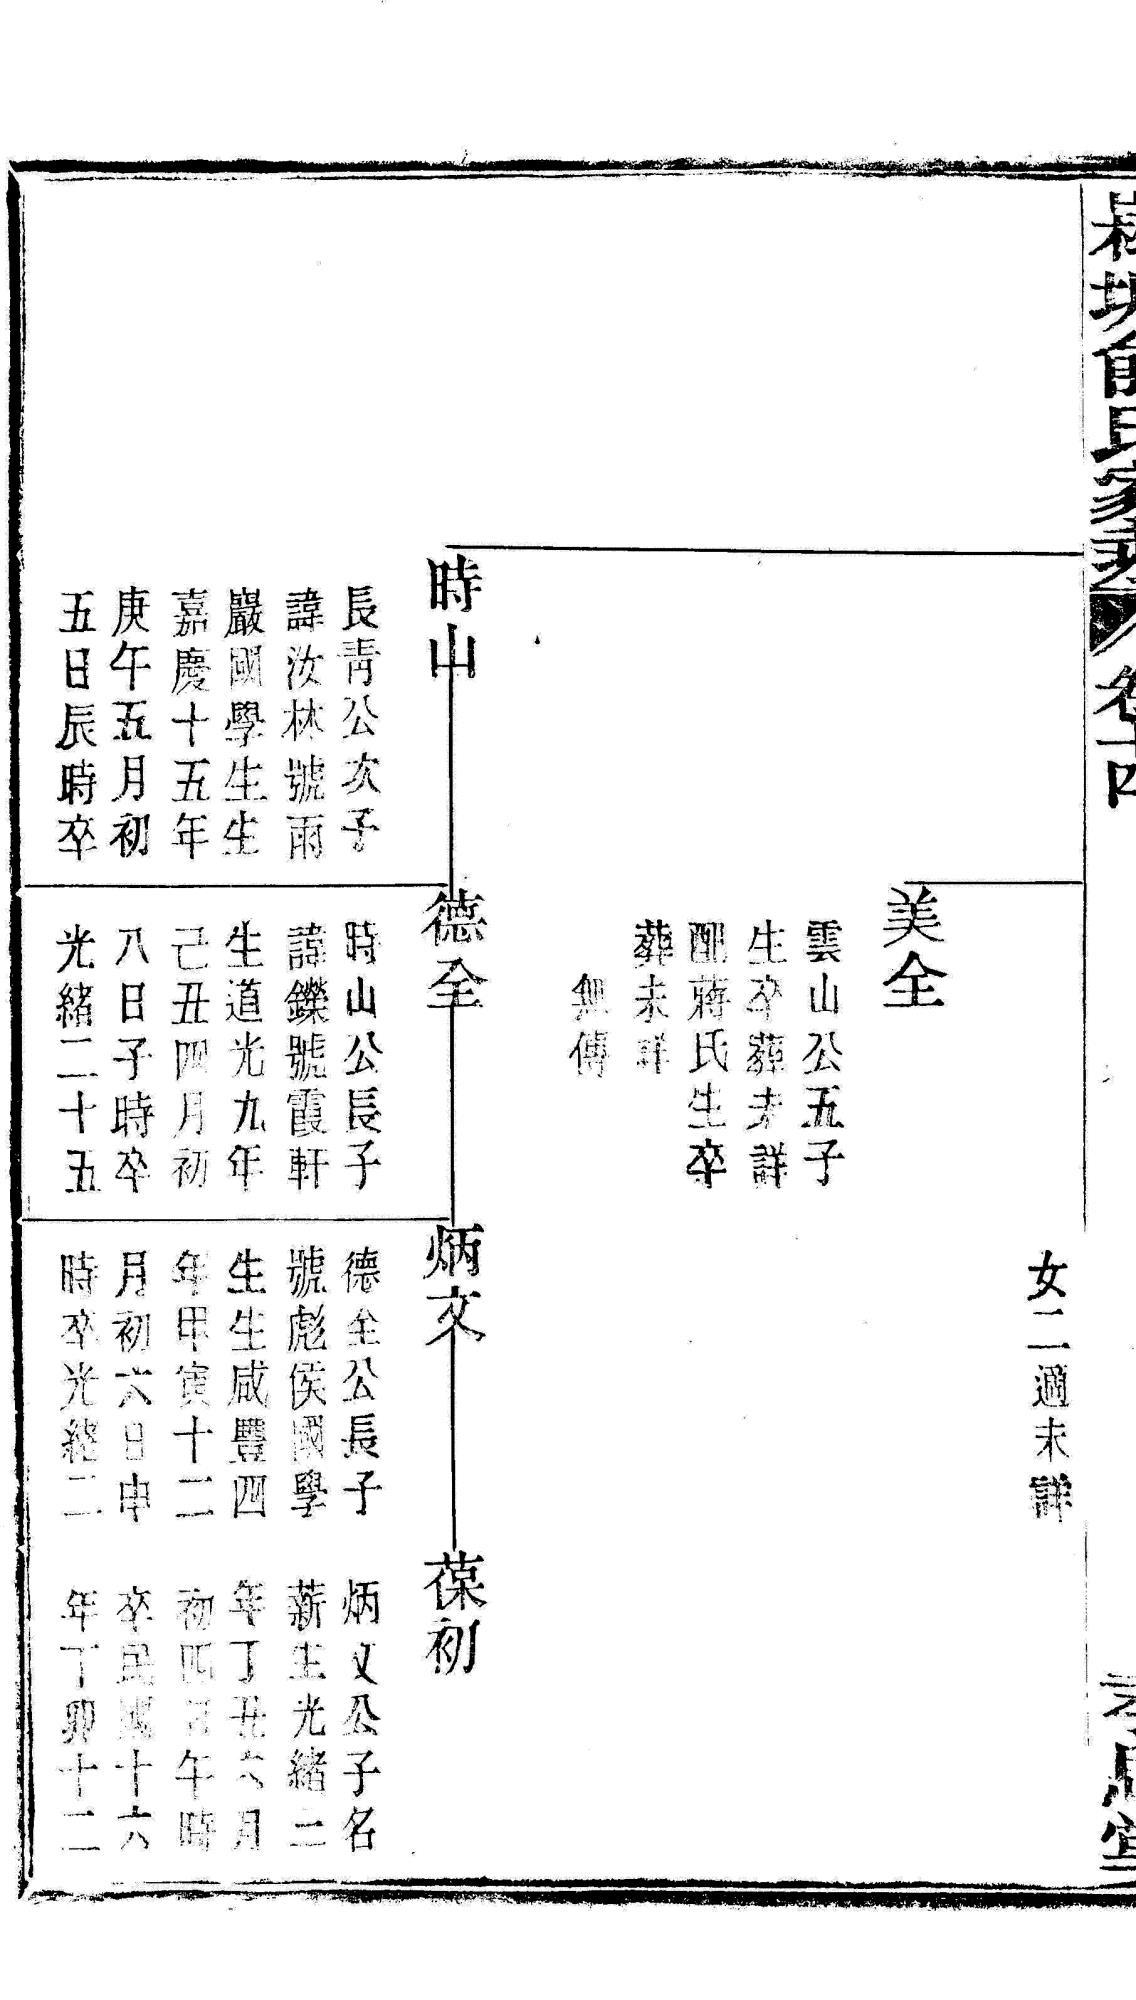 俞氏家乘
卷十四
女二適未詳
美全
雲山公五子
生卒葬未詳
配蔣氏生卒
葬未詳
無傳
時山
長青公次子
諱汝林號雨
巖國學生生
嘉慶十五年
庚午五月初
五日辰時卒
德全
時山公長子
諱鑠號霞軒
生道光九年
己丑四月初
八日子時卒
光緒二十五
炳文
德全公長子
號彪侯國學
生生咸豐四
年甲寅十二
月初六日申
時卒光緒二
葆初
炳文公子名
薪生光緒三
年丁丑六月
初四日午時
卒民國十六
年丁卯十二